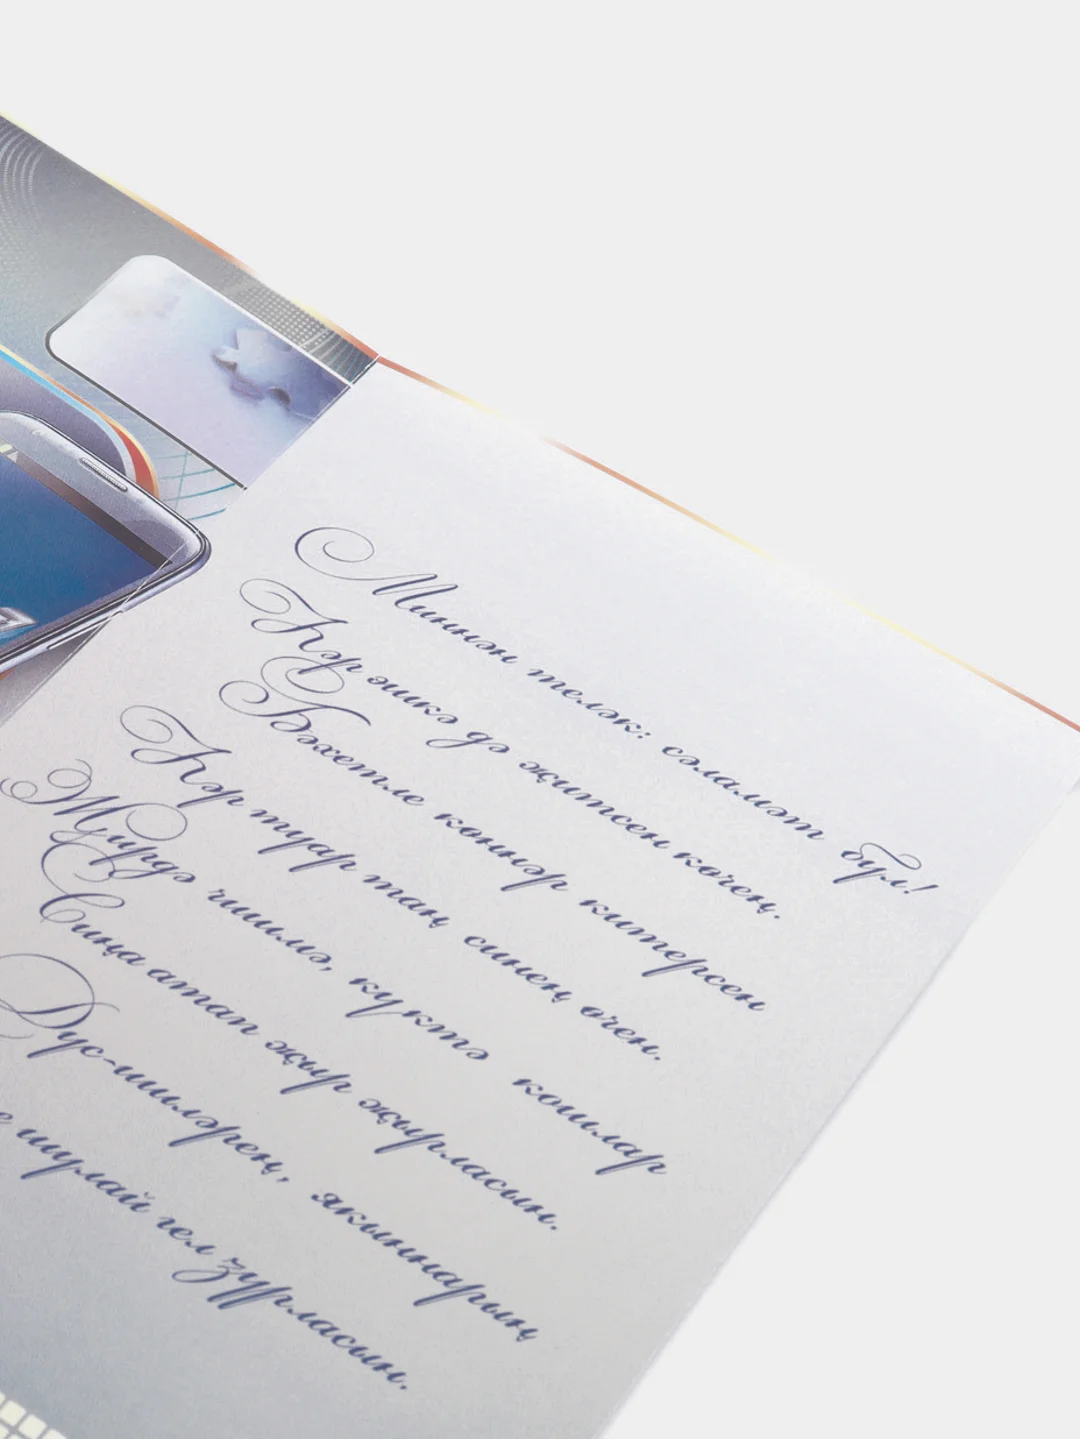 Миннән теләк: сәламәт бул!
Һәр эшкә дә җитсен көчең.
Бәхетле көннәр китерсен
Һәр туар таң синең өчен.
Җирдә чишмә, күктә кошлар
Сиңа атап җыр җырласын.
Дус-ишләрең, якыннарың
шулай гел зурласын.